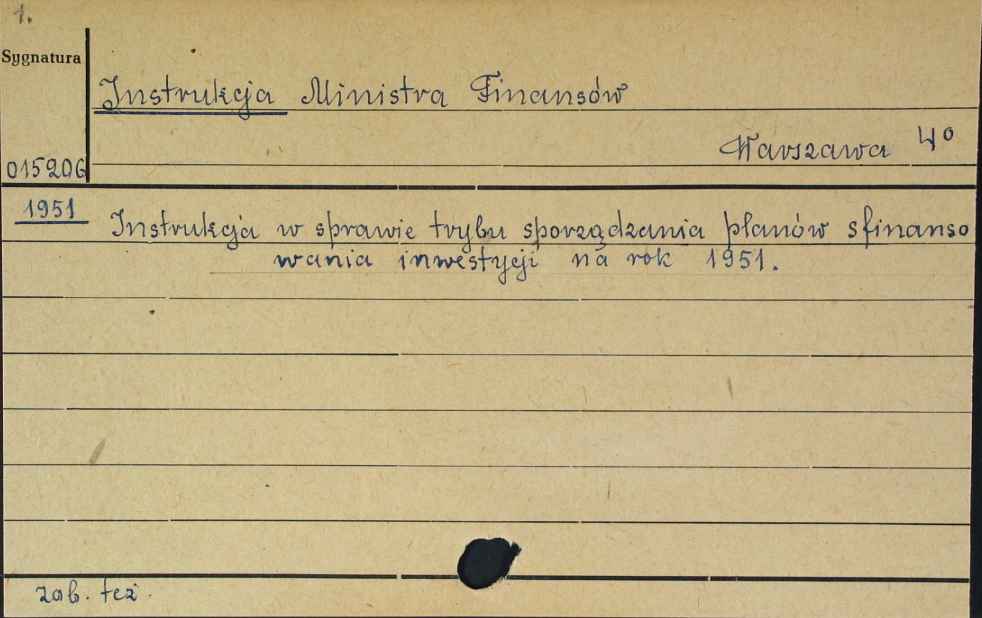 1.
Sygnatura
Instrukcja Ministra Finansów
Warszawa 4°
015206
1951 Instrukcja w sprawie trybu sporządzania planów sfinanso
wania inwestycji na rok 1951.
zob. też.